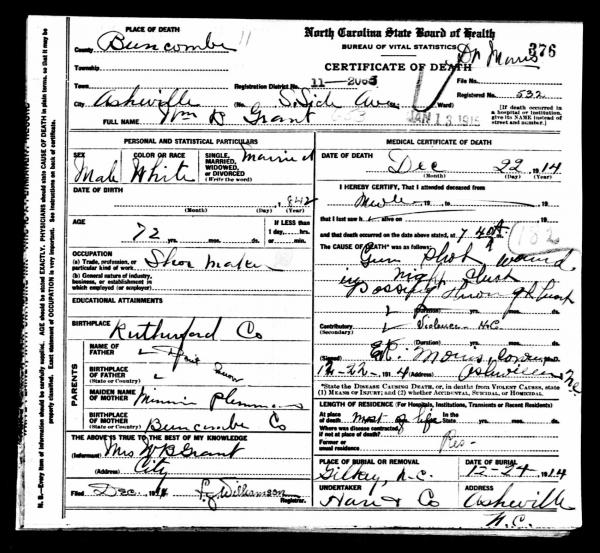 PLACE OF DEATH
County Buncombe 11
Township
Town
City Asheville
FULL NAME Wm B Grant
North Carolina State Board of Health
BUREAU OF VITAL STATISTICS
CERTIFICATE OF DEATH
Dr Morris 376
Registration District No. 11-2065
File No.
(No. S. Side Ave Ward)
Registered No. 532
[If death occurred in a hospital or institution, give its NAME instead of street and number.]
JAN 13 1915
PERSONAL AND STATISTICAL PARTICULARS
SEX Male
COLOR OR RACE White
SINGLE, MARRIED, WIDOWED, OR DIVORCED (Write the word) Married
DATE OF BIRTH
, 1842
(Month) (Day) (Year)
AGE
72 yrs. mos. ds.
If LESS than 1 day, hrs. or min.
OCCUPATION
(a) Trade, profession, or particular kind of work Shoe Maker
(b) General nature of industry, business, or establishment in which employed (or employer)
EDUCATIONAL ATTAINMENTS
BIRTHPLACE Rutherford Co
PARENTS
NAME OF FATHER
BIRTHPLACE OF FATHER (State or Country)
MAIDEN NAME OF MOTHER Minnie Plemmons
BIRTHPLACE OF MOTHER (State or Country) Buncombe Co
THE ABOVE IS TRUE TO THE BEST OF MY KNOWLEDGE
(Informant) Mrs W B Grant
(Address) City
Filed Dec 1914 Williamson Registrar.
MEDICAL CERTIFICATE OF DEATH
DATE OF DEATH
Dec 22 1914
(Month) (Day) (Year)
I HEREBY CERTIFY, That I attended deceased from
, 19 , to , 19
that I last saw h alive on , 19
and that death occurred on the date above stated, at 7 40
182
The CAUSE OF DEATH* was as follows:
Gun Shot wound
(Duration) yrs. mos. ds.
Contributory (Secondary) Violence
(Duration) yrs. mos. ds.
(Signed) E.R. Morris, Coroner
12-22- 1914 (Address) Asheville N.C.
*State the DISEASE CAUSING DEATH, or, in deaths from VIOLENT CAUSES, state (1) MEANS OF INJURY; and (2) whether ACCIDENTAL, SUICIDAL, or HOMICIDAL.
LENGTH OF RESIDENCE (For Hospitals, Institutions, Transients or Recent Residents)
At place of death most of life In the State
Where was disease contracted, if not at place of death?
Former or usual residence Res-
PLACE OF BURIAL OR REMOVAL
Gilkey, N.C.
DATE OF BURIAL
12-24 1914
UNDERTAKER
Hare & Co
ADDRESS
Asheville
N.C.